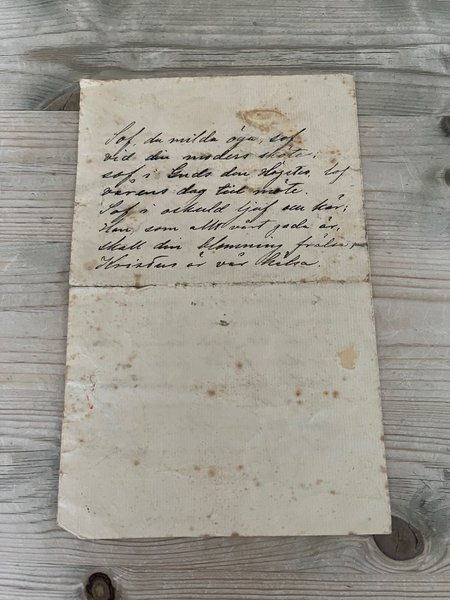 Sof, du milda öga, sof
vid din moders sköte;
sof i Guds den Högstes, lof
vårens dag till möte.
Sof i oskuld ljuf och kär;
Han, som allt vårt goda är,
skall din blomning frälsa
Kristus är vår hälsa.